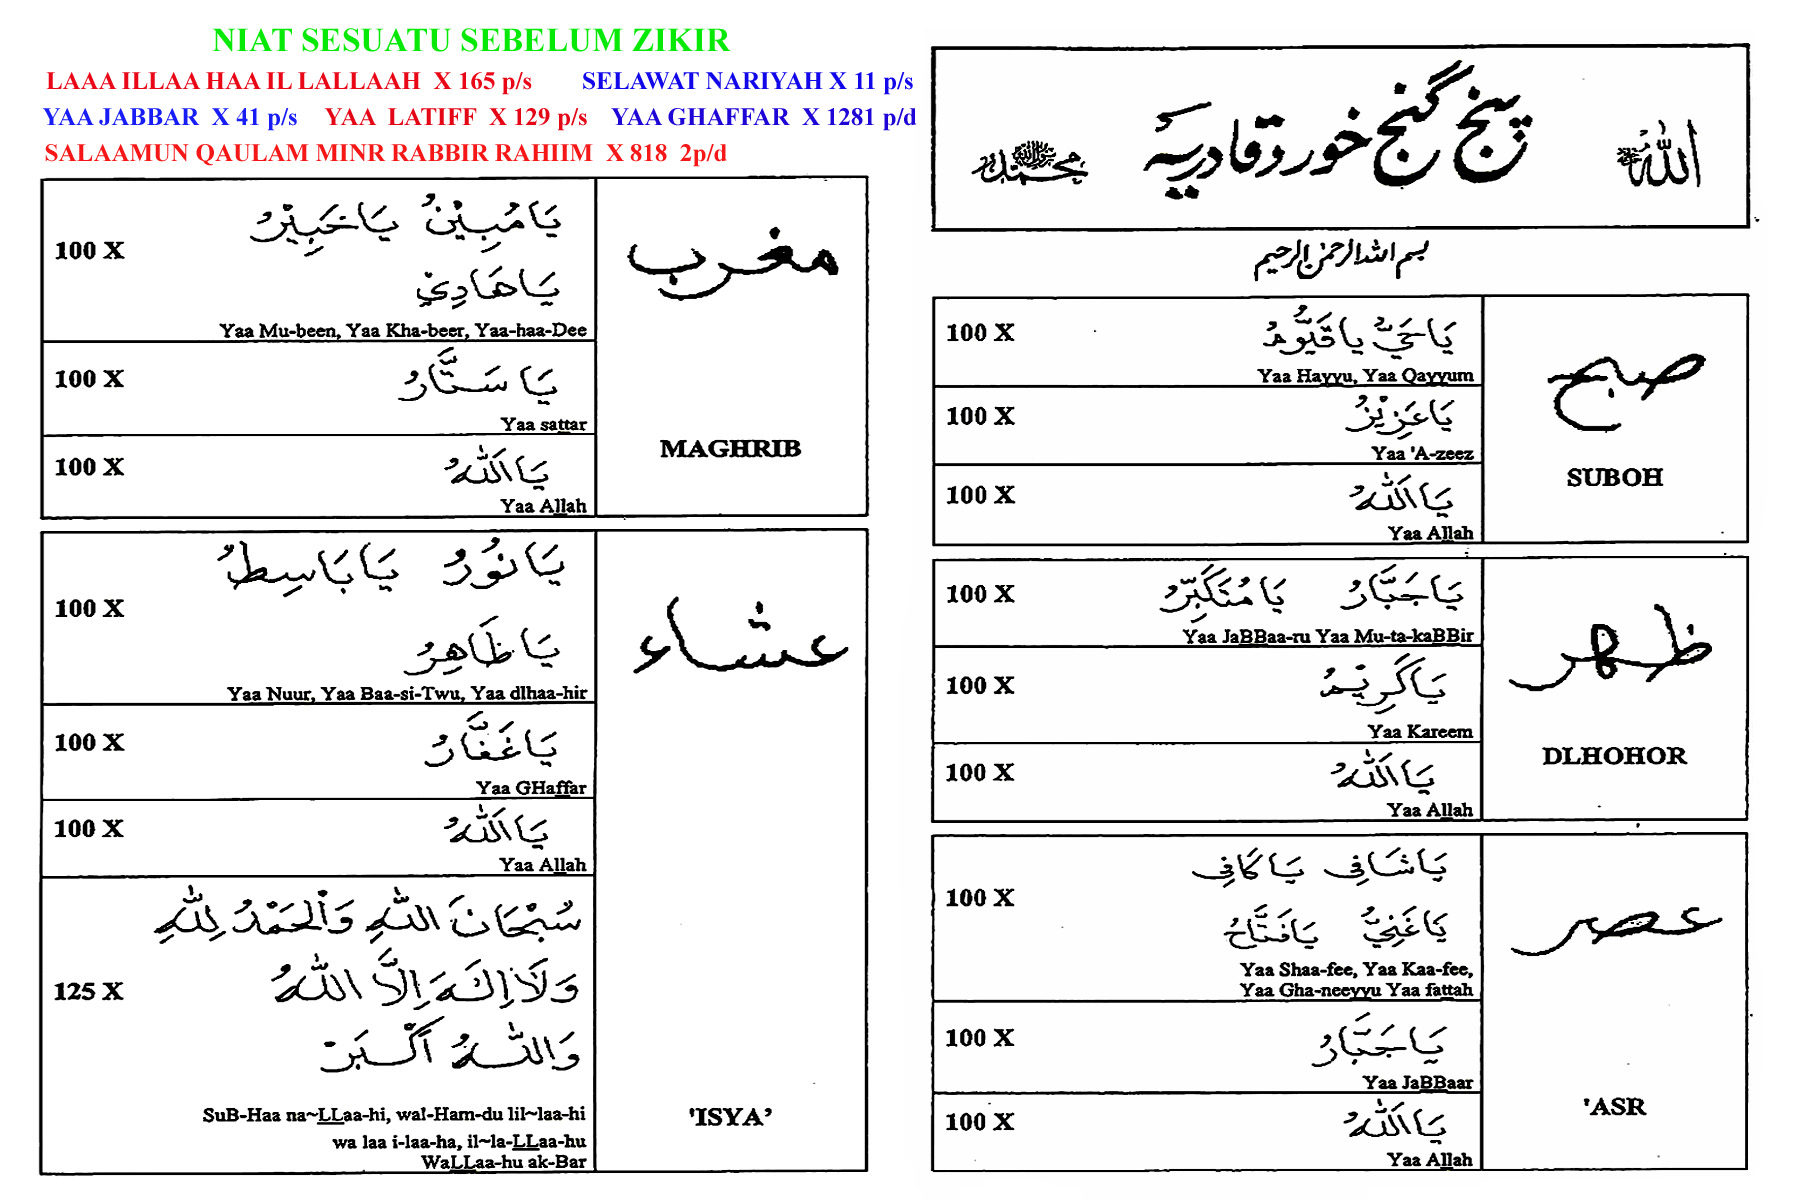 NIAT SESUATU SEBELUM ZIKIR
LAAA ILLAA HAA IL LALLAAH X 165 p/s SELAWAT NARIYAH X 11 p/s
YAA JABBAR X 41 p/s YAA LATIFF X 129 p/s YAA GHAFFAR X 1281 p/d
SALAAMUN QAULAM MINR RABBIR RAHIIM X 818 2p/d
مغرب
MAGHRIB
100 X
يَا مُبِيْنُ يَا خَبِيْرُ
يَا هَادِيْ
Yaa Mu-been, Yaa Kha-beer, Yaa-haa-Dee
100 X
يَا سَتَّارُ
Yaa sattar
100 X
يَا اَللّٰهُ
Yaa Allah
عشاء
'ISYA’
100 X
يَا نُوْرُ يَا بَاسِطُ
يَا ظَاهِرُ
Yaa Nuur, Yaa Baa-si-Twu, Yaa dlhaa-hir
100 X
يَا غَفَّارُ
Yaa GHaffar
100 X
يَا اَللّٰهُ
Yaa Allah
125 X
سُبْحَانَ اللّٰهِ وَالْحَمْدُ لِلّٰهِ
وَلَا اِلٰهَ اِلَّا اللّٰهُ
وَاللّٰهُ اَكْبَرْ
SuB-Haa na~LLaa-hi, wal-Ham-du lil~laa-hi
wa laa i-laa-ha, il~la-LLaa-hu
WaLLaa-hu ak-Bar
الله
پنج گنج خورد قادریۂ
محمد
بسم الله الرحمن الرحيم
صبح
SUBOH
100 X
يَا حَيُّ يَا قَيُّوْمُ
Yaa Hayyu, Yaa Qayyum
100 X
يَا عَزِيْزُ
Yaa 'A-zeez
100 X
يَا اَللّٰهُ
Yaa Allah
ظهر
DLHOHOR
100 X
يَا جَبَّارُ يَا مُتَكَبِّرُ
Yaa JaBBaa-ru Yaa Mu-ta-kaBBir
100 X
يَا كَرِيْمُ
Yaa Kareem
100 X
يَا اَللّٰهُ
Yaa Allah
عصر
'ASR
100 X
يَا شَافِى يَا كَافِى
يَا غَنِيُّ يَا فَتَّاحُ
Yaa Shaa-fee, Yaa Kaa-fee,
Yaa Gha-neeyyu Yaa fattah
100 X
يَا جَبَّارُ
Yaa JaBBaar
100 X
يَا اَللّٰهُ
Yaa Allah